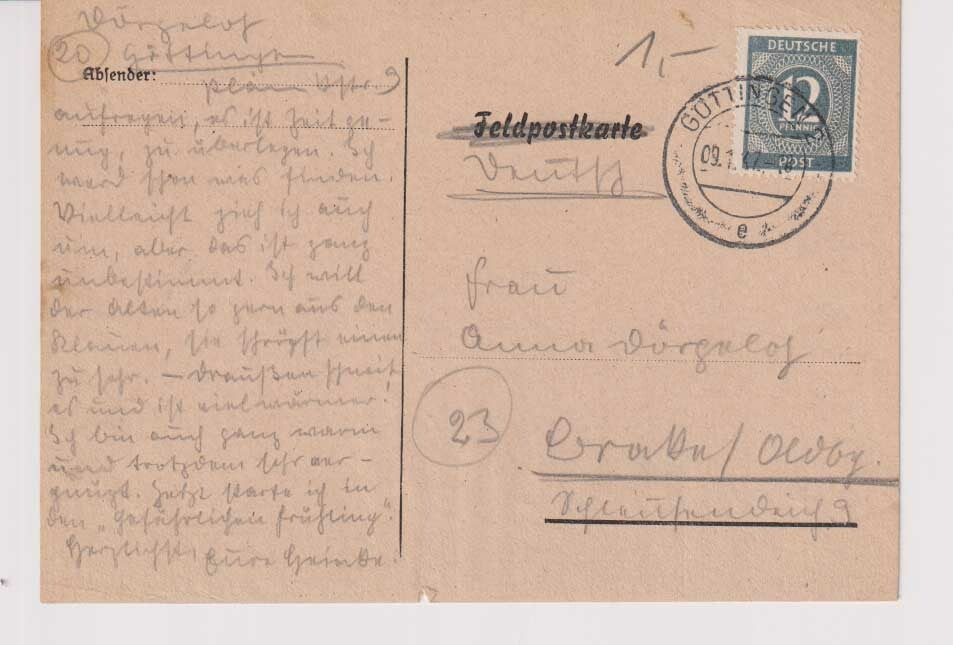 Dörgeloh
20 Göttingen
Absender:
Planckstr. 9
aufregen, es ist Zeit ge-
nug, zu überlegen. Ich
werd schon was finden.
Vielleicht zieh ich auch
um, aber das ist ganz
unbestimmt. Ich will
der Alten so gern aus den
Klauen, sie schröpft einen
zu sehr. – Draußen schneit
es und ist viel wärmer.
Ich bin auch ganz warm
und trotzdem sehr ver-
gnügt. Jetzt starte ich in
den „Gefährlichen Frühling".
Herzlichst Eure Heinke.
1,-
DEUTSCHE
12
PFENNIG
POST
GÖTTINGEN
e
Feldpostkarte
Deutsch
Frau
Anna Dörgeloh
23
Brake / Oldbg.
Schleusendeich 9